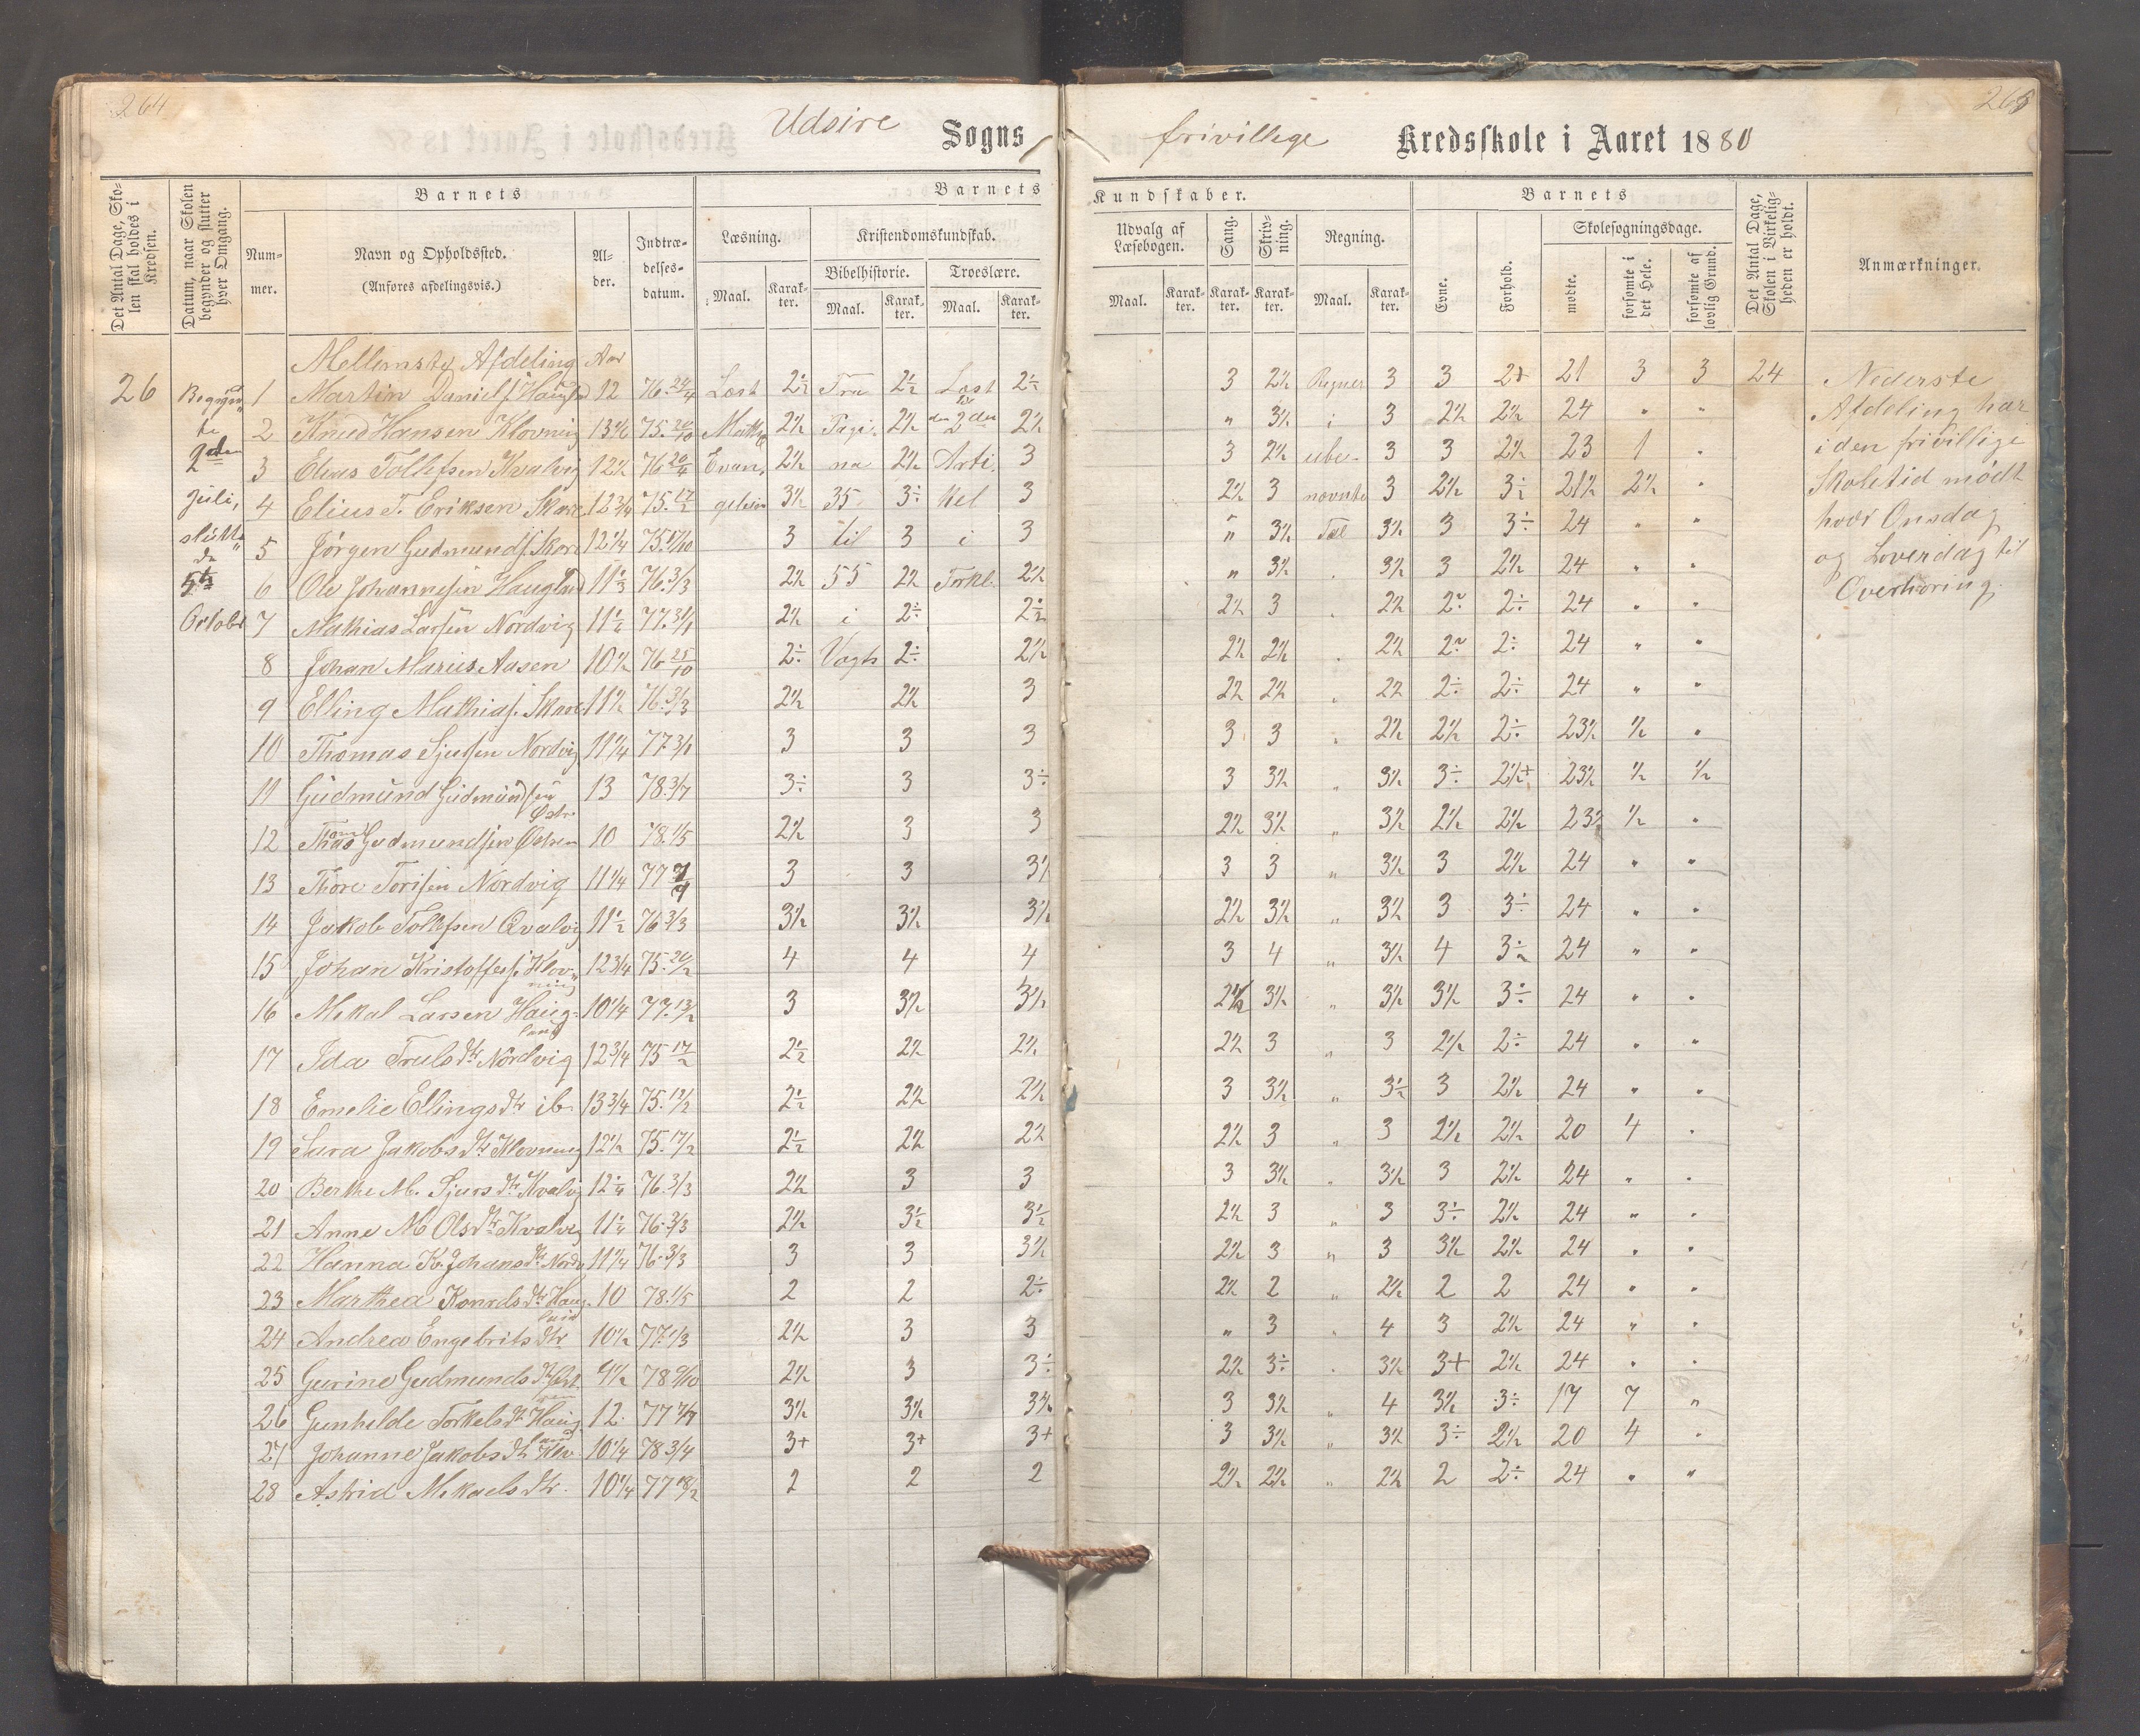 264
265
Udsire Sogns frivillege Kredsskole i Aaret 1880
Det Antal Dage, Skolen skal holdes i Kredsen.
Datum, naar Skolen begynder og slutter hver Omgang.
Barnets
Nummer.
Navn og Opholdssted.
(Anføres afdelingsvis.)
Alder.
Indtrædelsesdatum.
Barnets Kundskaber.
Læsning.
Maal. Karakter.
Kristendomskundskab.
Bibelhistorie.
Maal. Karakter.
Troeslære.
Maal. Karakter.
Udvalg af Læsebogen.
Maal. Karakter.
Sang. Karakter.
Skrivning. Karakter.
Regning.
Maal. Karakter.
Barnets
Evne.
Forhold.
Skolesøgningsdage.
mødte.
forsømte i det Hele.
forsømte af lovlig Grund.
Det Antal Dage, Skolen i Virkeligheden er holdt.
Anmærkninger.
Mellemste Afdeling Aar
26 Begyndte 2den Juli, sluttede 5te October
1 Martin Daniels. Haugland 12 76 24/4 Læst 2½ Fra 2½ Læst 2½ 3 2½ Regnet 3 3 2+ 21 3 3 24
2 Knud Hansen Klovning 75 20/10 Math 2½ Pagi- 2½ den 2den 2½ " 3½ i 3 2½ 2½ 24 " "
3 Elias Tollefsen Kvalvig 12½ 76 20/4 Evan- 2½ na 2½ Arti- 3 3 2½ ube- 3 3 2½ 23 1 "
4 Elius T. Eriksen Skare 12¾ 75 17/2 geliein 3½ 35 3÷ kel 3 2½ 3 nævnte 3 2½ 3÷ 21½ 2½ "
5 Jørgen Gudmunds. Skare 12¼ 3 til 3 i 3 " 3½ Tal 3½ 3 3÷ 24 " "
6 Ole Johannesen Haugland 11⅓ 76 3/3 2½ 55 2½ Forkl. 2½ " 3½ " 3½ 3 2½ 24 " "
7 Mathias Larsen Nordvig 77 31/1 2½ i 2÷ 2½ 2½ 3 " 2½ 2÷ 24 " "
8 Johan Marius Aasen 10½ 76 25/10 2÷ Vogts 2÷ 2½ 2½ 2½ " 2½ 2÷ 24 " "
9 Elling Mathias. Skare 11½ 76 3/3 2½ 2½ 3 2½ 2½ " 2½ 2÷ 2÷ 24 " "
10 Thomas Sjursen Nordvig 11¼ 77 3/1 3 3 3 3 3 " 2½ 2½ 2÷ 23½ ½ "
11 Gudmund Gudmundsen Østr. 13 78 3/7 3÷ 3 3÷ 3 3½ " 3½ 3÷ 2½+ 23½ ½ ½
12 Gudmundsen Østren 10 78 1/5 2½ 3 3 2½ 3½ " 3½ 2½ 2½ 23½ ½ "
13 Thore Torisen Nordvig 11¼ 77 7/9 3 3 3½ 3 3 " 3½ 3 2½ 24 " "
14 Jakob Tollefsen Qvalvig 11½ 76 3/3 3½ 3½ 3½ 2½ 3½ " 3½ 3 3÷ 24 " "
15 Johan Kristoffers. Klovning 12¾ 75 20/2 4 4 4 3 4 " 3½ 4 24 " "
16 Mekal Larsen Haugland 10¼ 77 13/2 3 3½ 3½ 2½ 3½ " 3½ 3½ 3÷ 24 " "
17 Ida Truls dtr Nordvig 12¾ 75 17/2 2½ 2½ 2½ 2½ 3 " 3 2½ 2÷ 24 " "
18 Emelie Ellings dtr ib. 13¾ 2½ 2½ 2½ 3 3½ " 3½ 3 2½ 24 " "
19 Sara Jakobs dtr Klovning 12½ 75 17/2 2½ 2½ 2½ 2½ 3 " 3 2½ 2½ 20 4 "
20 Berthe M. Sjurs dtr Kvalvig 12¼ 76 3/3 2½ 3 3 3 3½ " 3½ 3 2½ 24 " "
21 Anne M Ols dtr Kvalvig 11¼ 76 3/3 2½ 3½ 3½ 2½ 3 " 3 3÷ 2½ 24 " "
22 Hanna K. Johans dtr Nordv 11¼ 76 3/3 3 3 3½ 2½ 3 " 3 3½ 2½ 24 " "
23 Marthea Konrds dtr Haugland 10 78 1/5 2 2 2÷ 2½ 2 " 2½ 2 2 24 " "
24 Andrea Engebrits dtr. 10½ 77 1/3 2½ 3 3 " 3 " 4 3 2½ 24 " "
25 Gurine Gudmunds dtr 9½ 2½ 3 3÷ 2½ 3÷ " 3½ 3+ 2½ 24 " "
26 Gunhilde Torkels dtr Haugland 12 77 7/7 3½ 3½ 3½ 3 3½ " 4 3½ 3÷ 17 7 "
27 Johanne Jakobs dtr Klov. 10¼ 78 3/4 3+ 3+ 3+ 3 3½ " 3½ 3÷ 2½ 20 4 "
28 Astrid Mekaels dtr. 10¼ 77 18/2 2 2 2 2½ 2½ " 2½ 2 2÷ 24 " "
Nederste
Afdeling har
i den frivillige
Skoletid mødt
hver Onsdag
og Løverdag til
Overhøring.